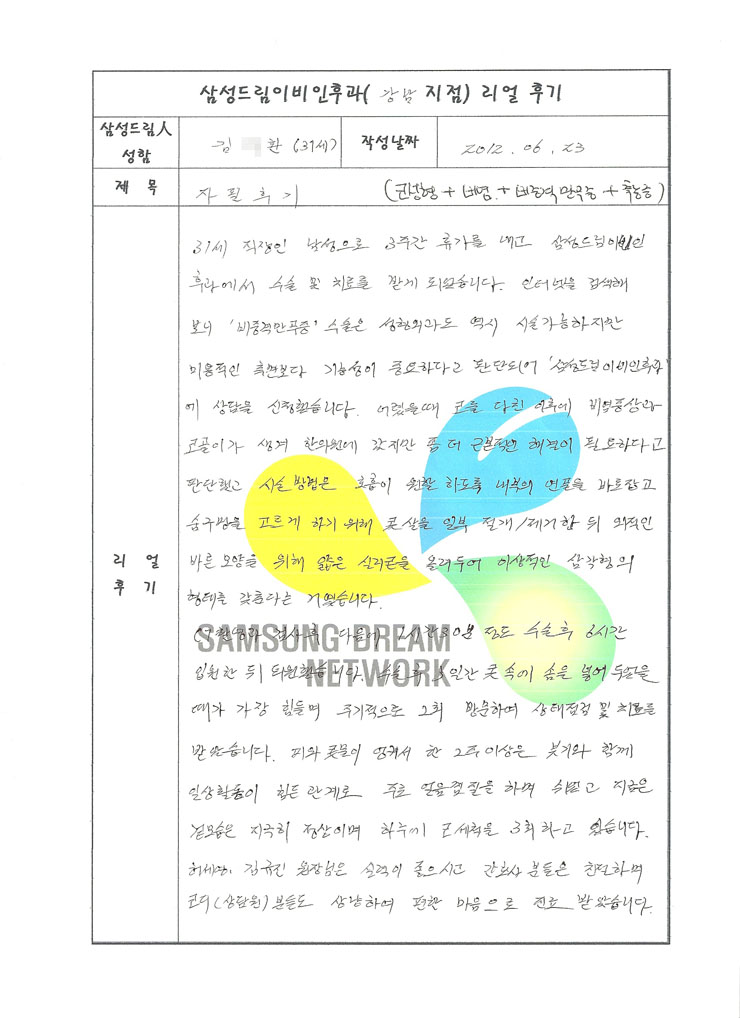 삼성드림이비인후과( 강남 지점) 리얼 후기
삼성드림人 성함
김 환 (31세)
작성날짜
2012. 06. 23
제 목
자필후기 (코성형 + 비염 + 비중격만곡증 + 축농증)
리 얼 후 기
31세 직장인 남성으로 3주간 휴가를 내고 삼성드림이비인
후과에서 수술 및 치료를 받게 되었습니다. 인터넷을 검색해
보니 '비중격만곡증' 수술은 성형외과도 역시 시술가능하지만
미용적인 측면보다 기능성이 중요하다고 판단되어 '삼성드림이비인후과'
에 상담을 신청했습니다. 어렸을때 코를 다친 이후에 비염증상과
코골이가 생겨 한의원에 갔지만 좀 더 근본적인 해결이 필요하다고
판단했고 시술방법은 호흡이 원활 하도록 내부의 연골을 바로잡고
숨구멍을 고르게 하기 위해 콧살을 일부 절개/제거한 뒤 외적인
바른 모양을 위해 얇은 실리콘을 올려두어 이상적인 삼각형의
형태를 갖춘다는 거였습니다.
검사후 다음에 1시간30분 정도 수술후 6시간
입원한 뒤 퇴원했습니다. 수술 후 일간 콧속에 솜을 넣어 두었을
때가 가장 힘들며 주기적으로 2회 방문하여 상태점검 및 치료를
받았습니다. 피와 콧물이 엉켜서 한 2주이상은 붓기와 함께
일상활동이 힘든 관계로 주로 얼음찜질을 하며 쉬었고 지금은
겉모습은 지극히 정상이며 하루에 코세척을 3회 하고 있습니다.
김규진 원장님은 실력이 좋으시고 간호사 분들은 친절하며
코디(상담원)분들도 상냥하여 편한 마음으로 진료 받았습니다.
SAMSUNG DREAM
NETWORK